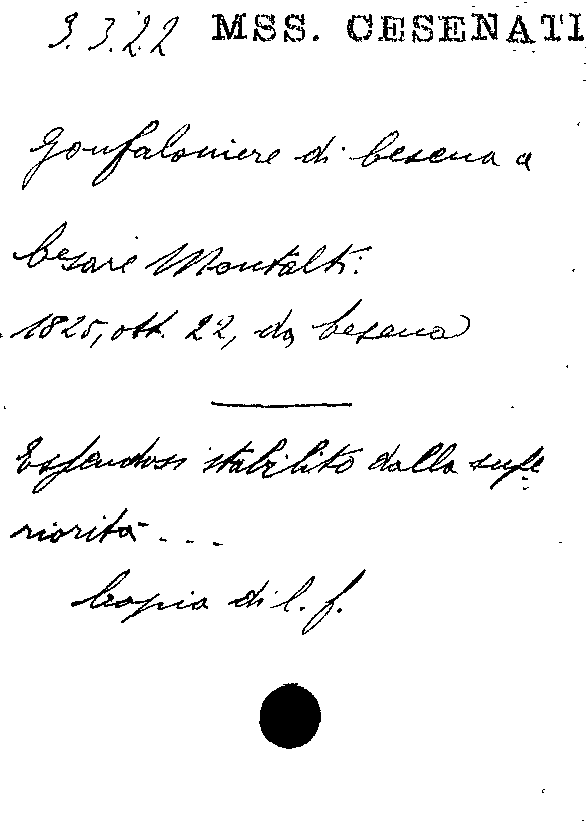 3.3.22 MSS. CESENATI
Gonfaloniere di Cesena a
Cesare Montalti.
1825, ott. 22, da Cesena
Essendosi stabilito dalla supe
riorità ...
Copia di l. f.